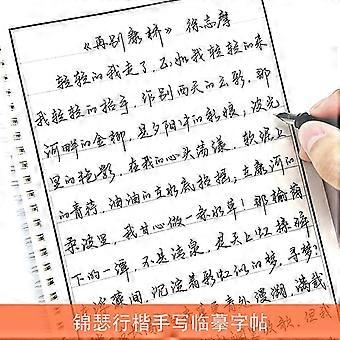 《再别康桥》徐志摩
轻轻的我走了,正如我轻轻的来
我轻轻的招手,作别西天的云彩,那
河畔的金柳,是夕阳中的新娘,波光
里的艳影,在我的心头荡漾,软泥上
的青荇,油油的在水底招摇,在康河的
柔波里,我甘心做一条水草!那榆荫
下的一潭,不是清泉,是天上虹,揉碎
浮藻间,沉淀着彩虹似的梦,寻梦?
青处漫溯,满载
锦瑟行楷手写临摹字帖